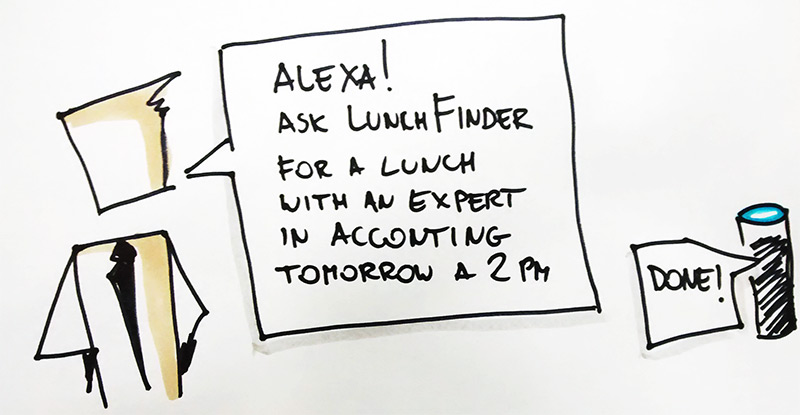 ALEXA!
ASK LUNCHFINDER
FOR A LUNCH
WITH AN EXPERT
IN ACCONTING
TOMORROW A 2 PM
DONE!